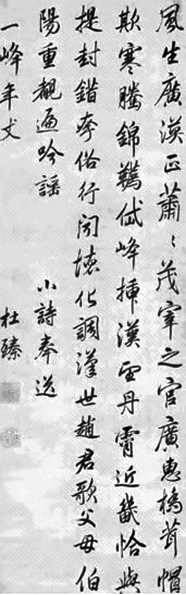 風生廣漢正蕭〻茂宰之官廣惠橋茸帽
欺寒騰錦韉岱峰插漢雪丹霄近畿恰與
提封錯夸俗行聞懷化調漢世趙君歌父母伯
陽重覩遍吟謡
小詩奉送
一峰年丈
杜臻